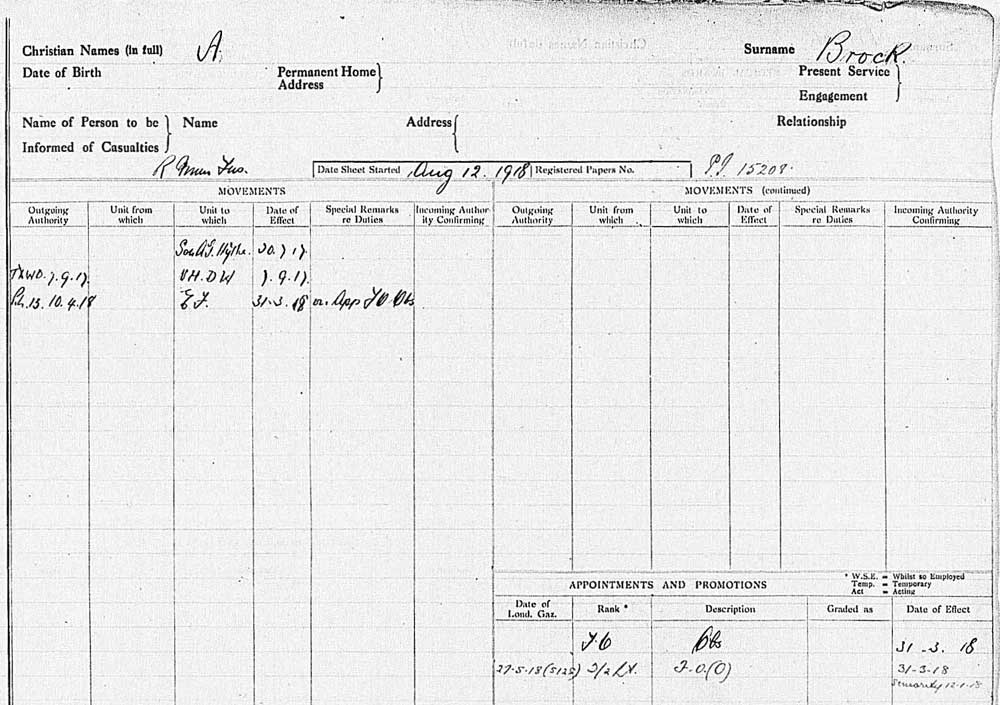 Christian Names (in full) A. Surname Brock.
Date of Birth Permanent Home Address Present Service
Engagement
Name of Person to be Informed of Casualties Name Address Relationship
R Mun Fus. Date Sheet Started Aug 12. 1918 Registered Papers No. P.I. 15208.
MOVEMENTS MOVEMENTS (continued)
Outgoing Authority Unit from which Unit to which Date of Effect Special Remarks re Duties Incoming Authority Confirming Outgoing Authority Unit from which Unit to which Date of Effect Special Remarks re Duties Incoming Authority Confirming
S of A.G. Hythe. 20.7.17
7.9.17. 7.9.17.
13. 10.4.18 E.F. 31-3.18 on App F O Obs
* W.S.E. = Whilst so Employed
APPOINTMENTS AND PROMOTIONS Temp. = Temporary
Act = Acting
Date of Lond. Gaz. Rank * Description Graded as Date of Effect
F.O Obs 31-3.18
27-5-18 (5125) T/2 Lt. F.O.(O) 31-3-18
Seniority 12-1-18